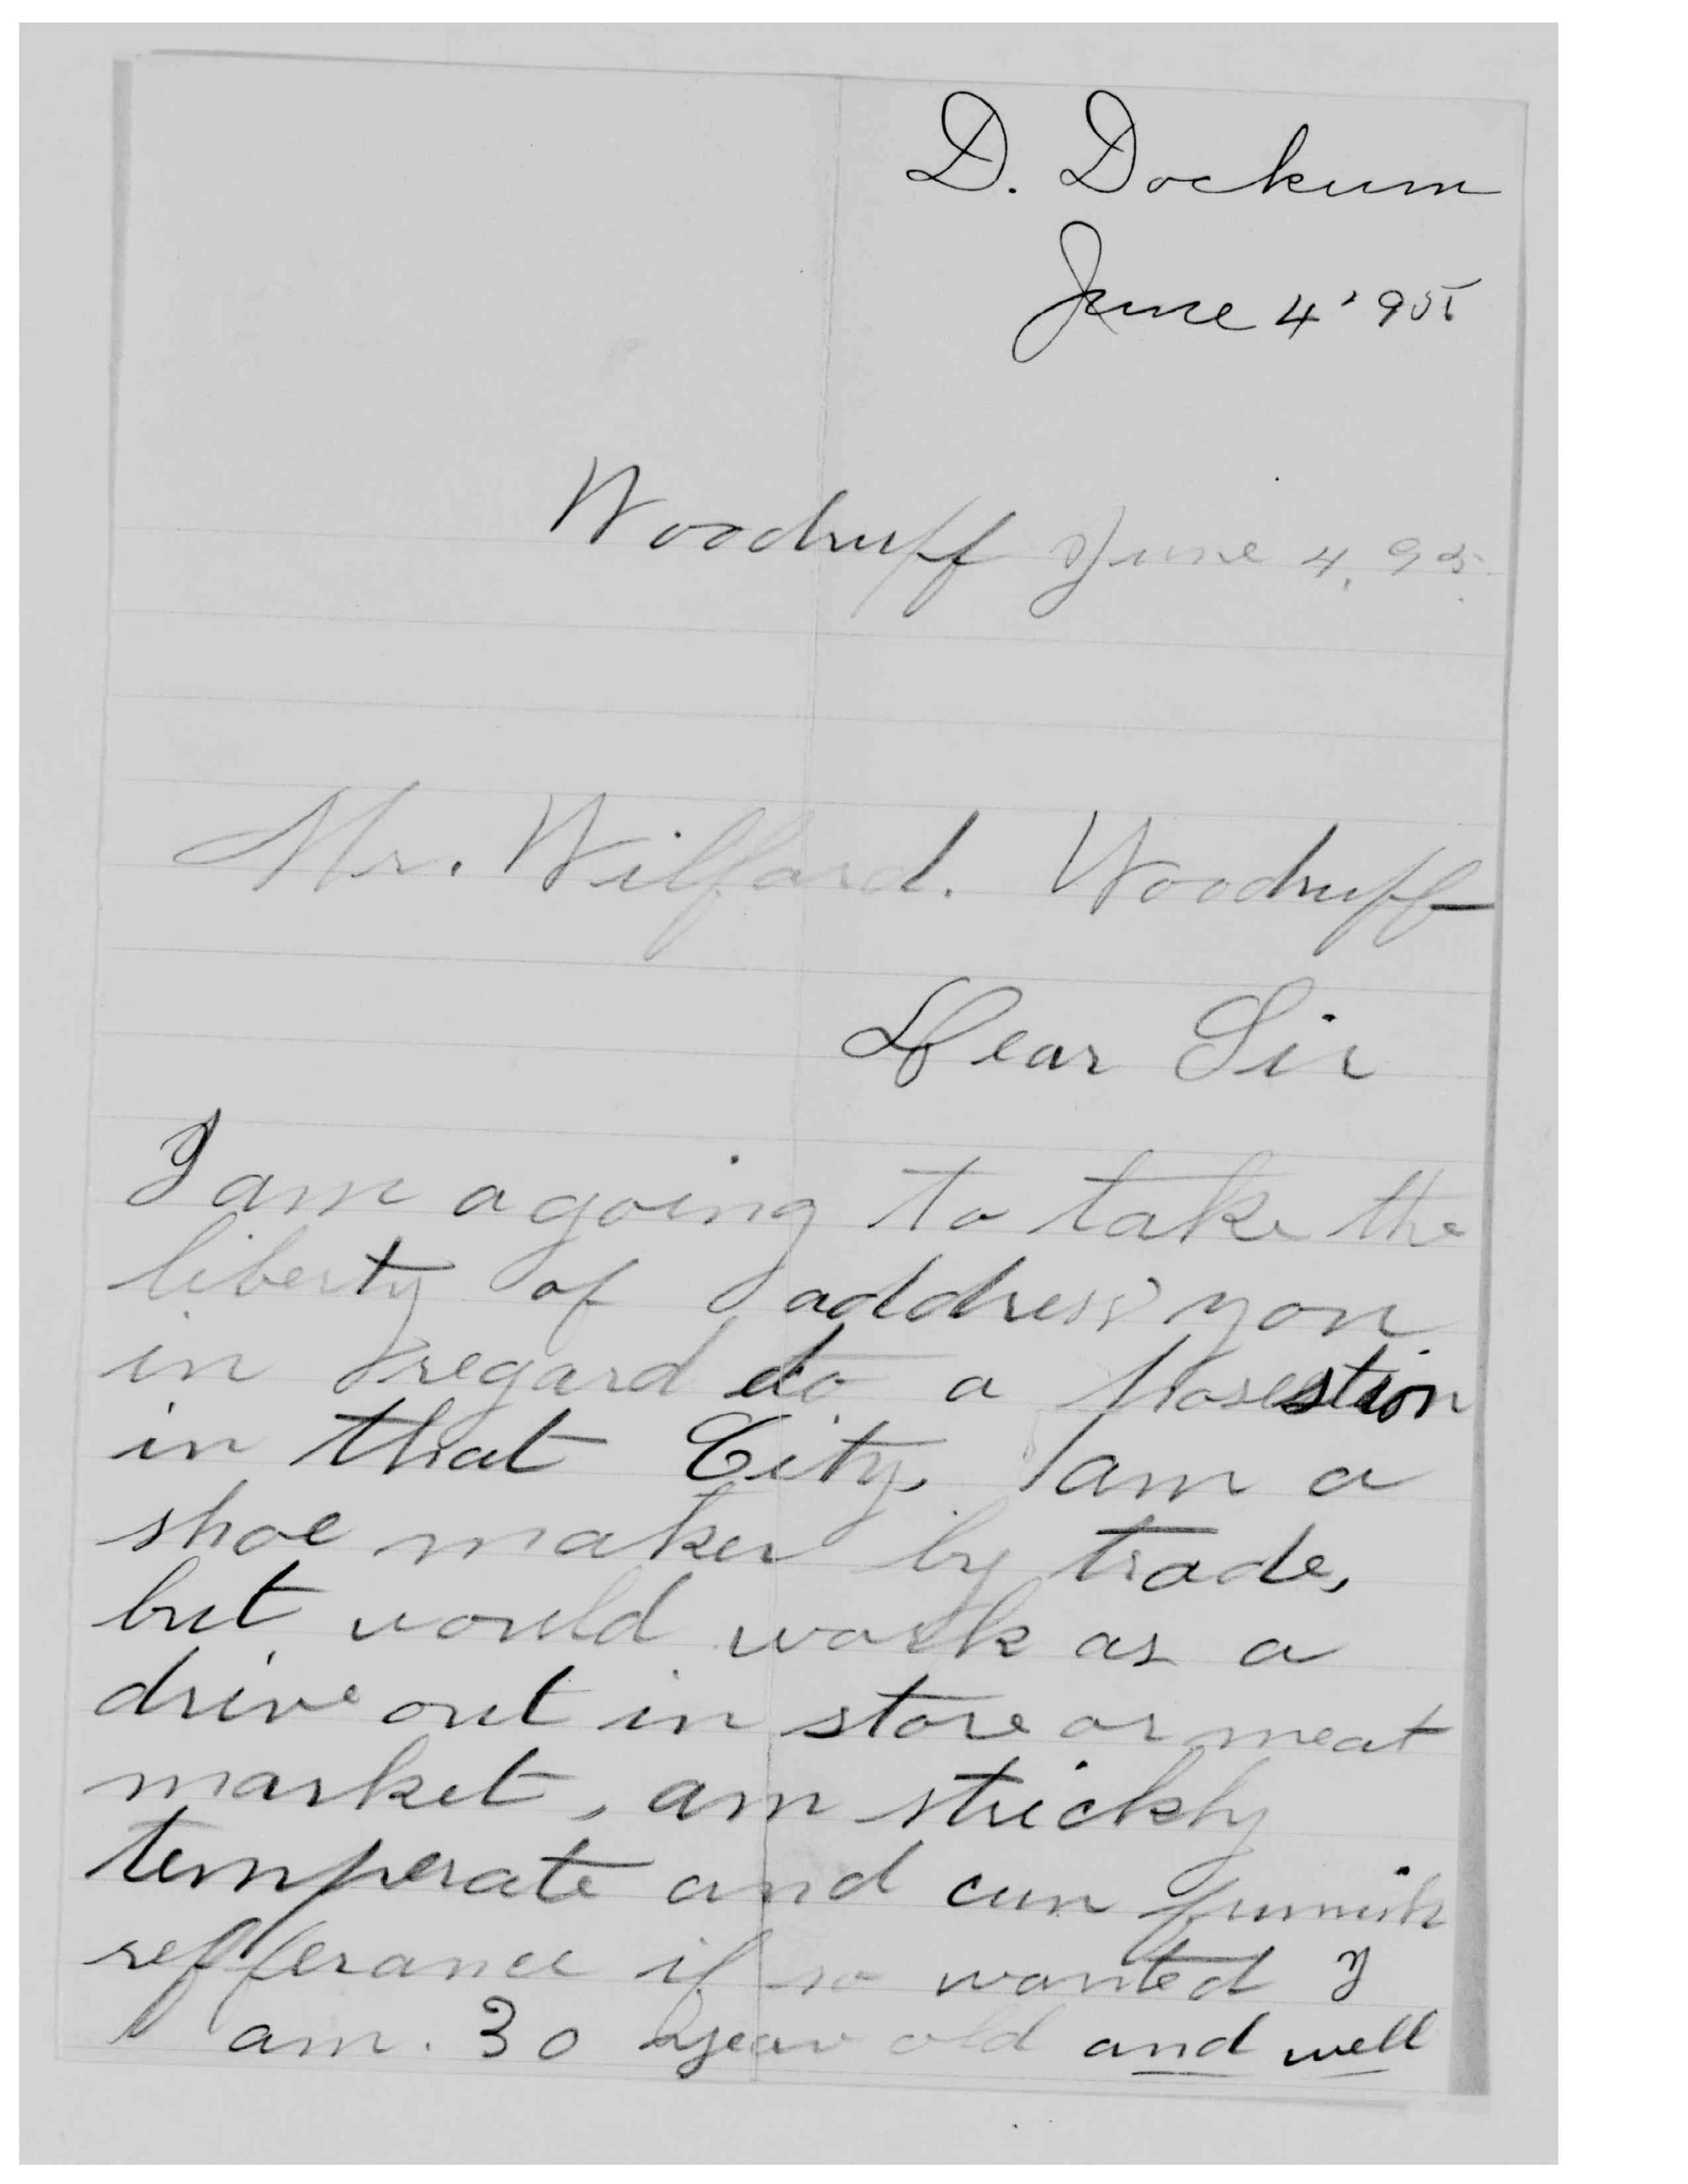 D. Dockum
June 4 '95
Woodruff June 4, 95.
Mr. Wilford. Woodruff
Dear Sir
I am agoing to take the
liberty of address you
in regard to a
in that City, I am a
shoe maker by trade,
but would work as a
drive out in store or meat
market, am strickly
temperate and can furnish
refferance if so wanted I
am. 30 year old and well